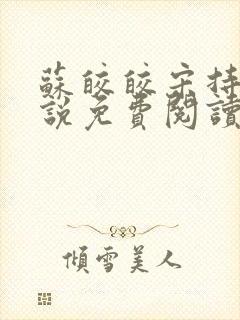 蘇皎皎宋持
說免費閱讀
傾雪美人